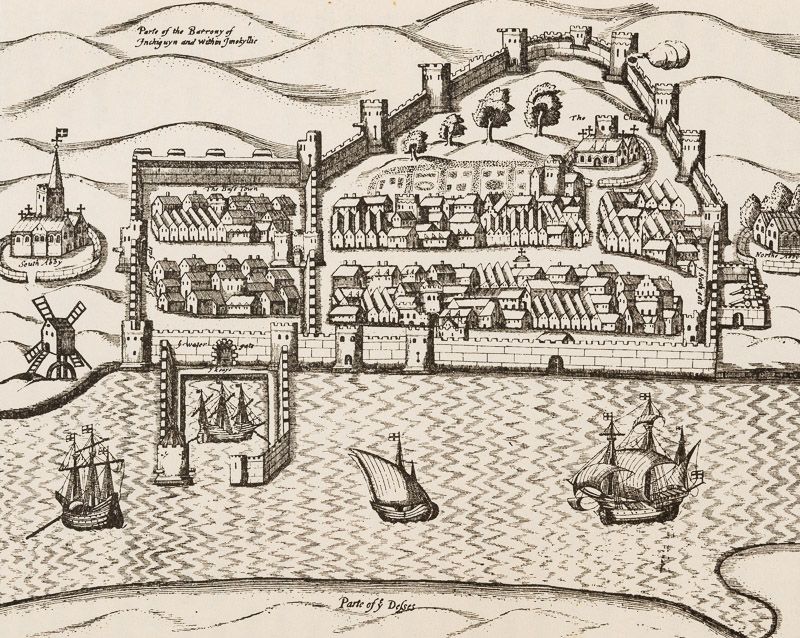 Parte of the Barrony of
Inchiguyn and within Imokyllie
The Church
The Base Town
South Abby
North Abby
ye water gate
Parte of ye Desses